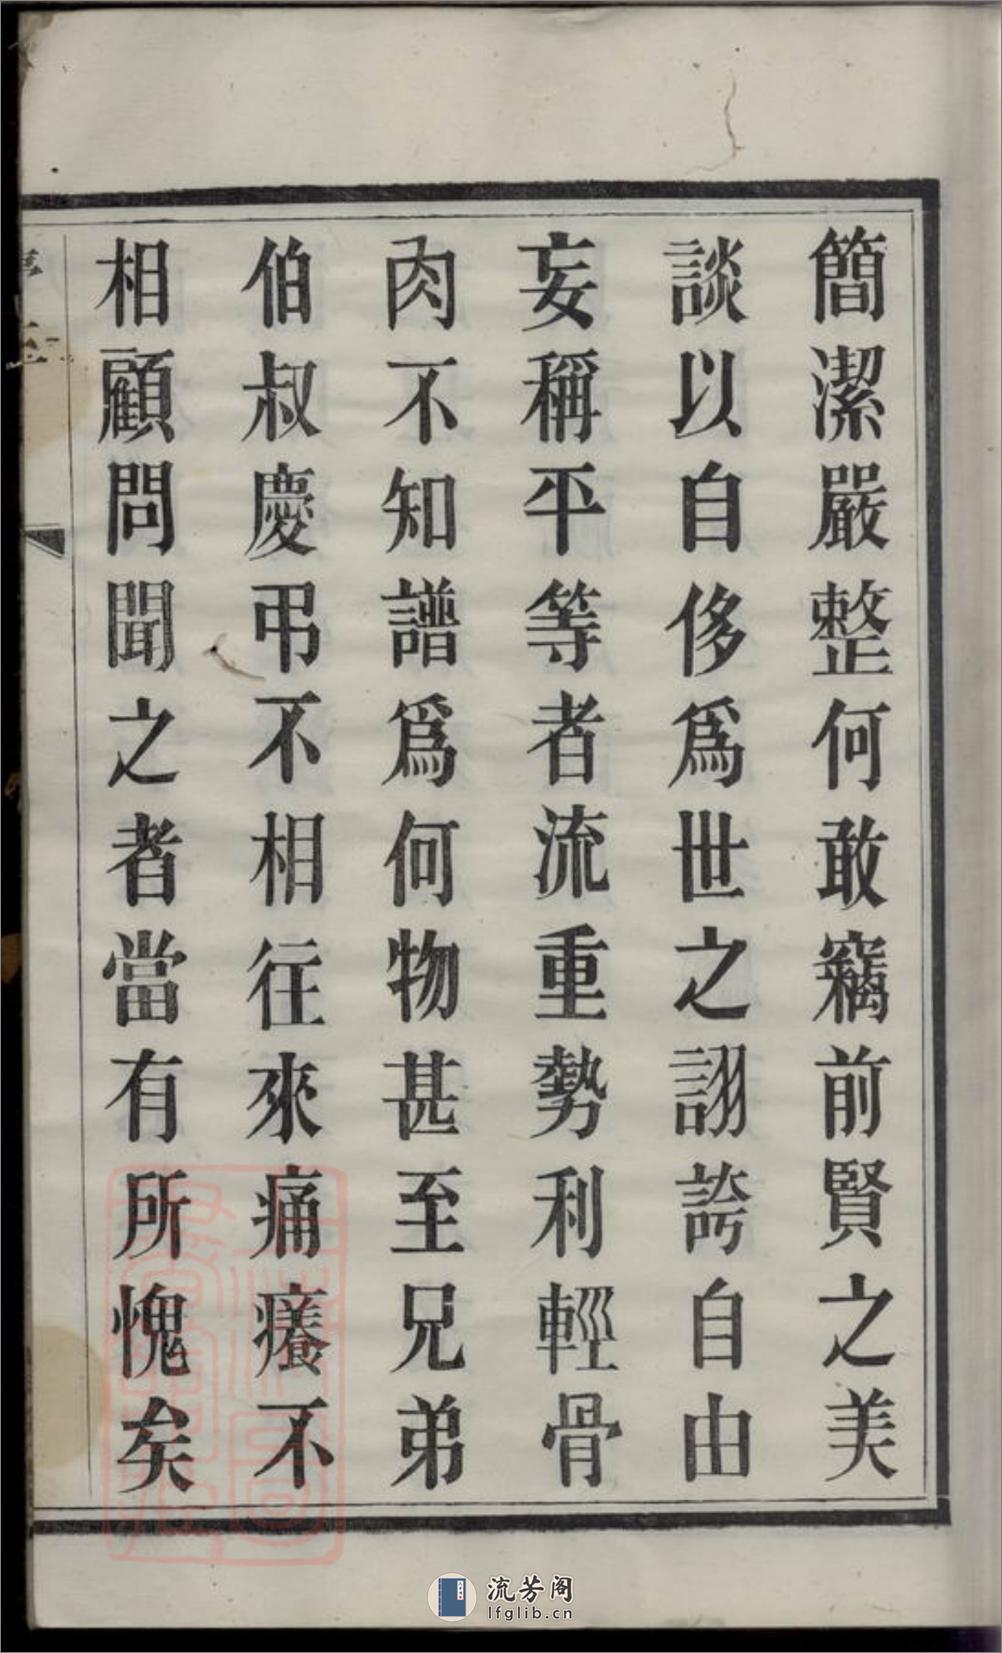 簡潔嚴整何敢竊前賢之美
談以自侈爲世之詡誇自由
妄稱平等者流重勢利輕骨
肉不知譜爲何物甚至兄弟
伯叔慶弔不相往來痛癢不
相顧問聞之者當有所愧矣
流芳阁
lfglib.cn